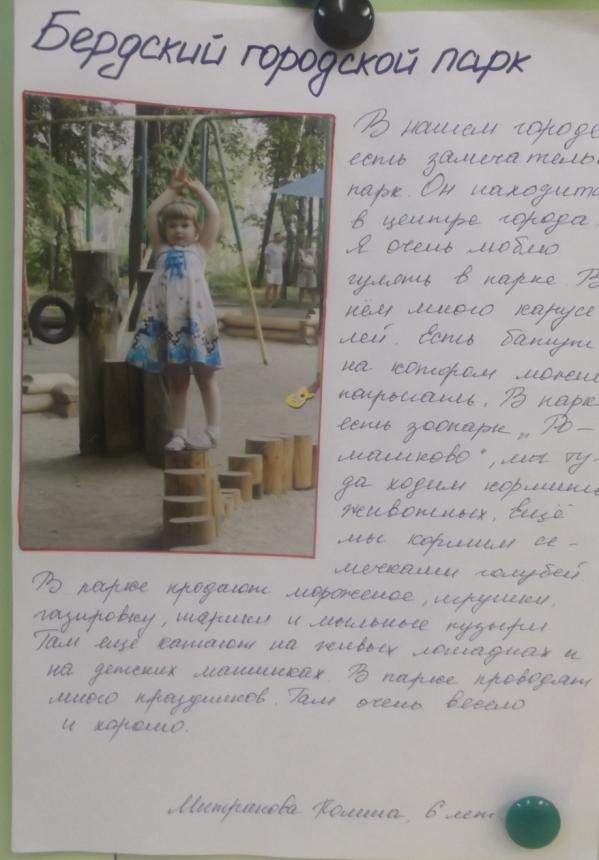 Бердский городской парк
В нашем городе
есть замечатель
парк. Он находитс
в центре города.
Я очень люблю
гулять в парке. В
нём много карусе
лей. Есть батут
на котором можно
попрыгать. В парк
есть зоопарк „Ро-
машково", мы ту-
да ходим кормить
животных. Ещё
мы кормим се-
мечками голубей.
В парке продают мороженое, игрушки,
газировку, шарики и мыльные пузыри
Там ещё катают на живых лошадках и
на детских машинках. В парке проводят
много праздников. Там очень весело
и хорошо.
Митракова Полина, 6 лет.